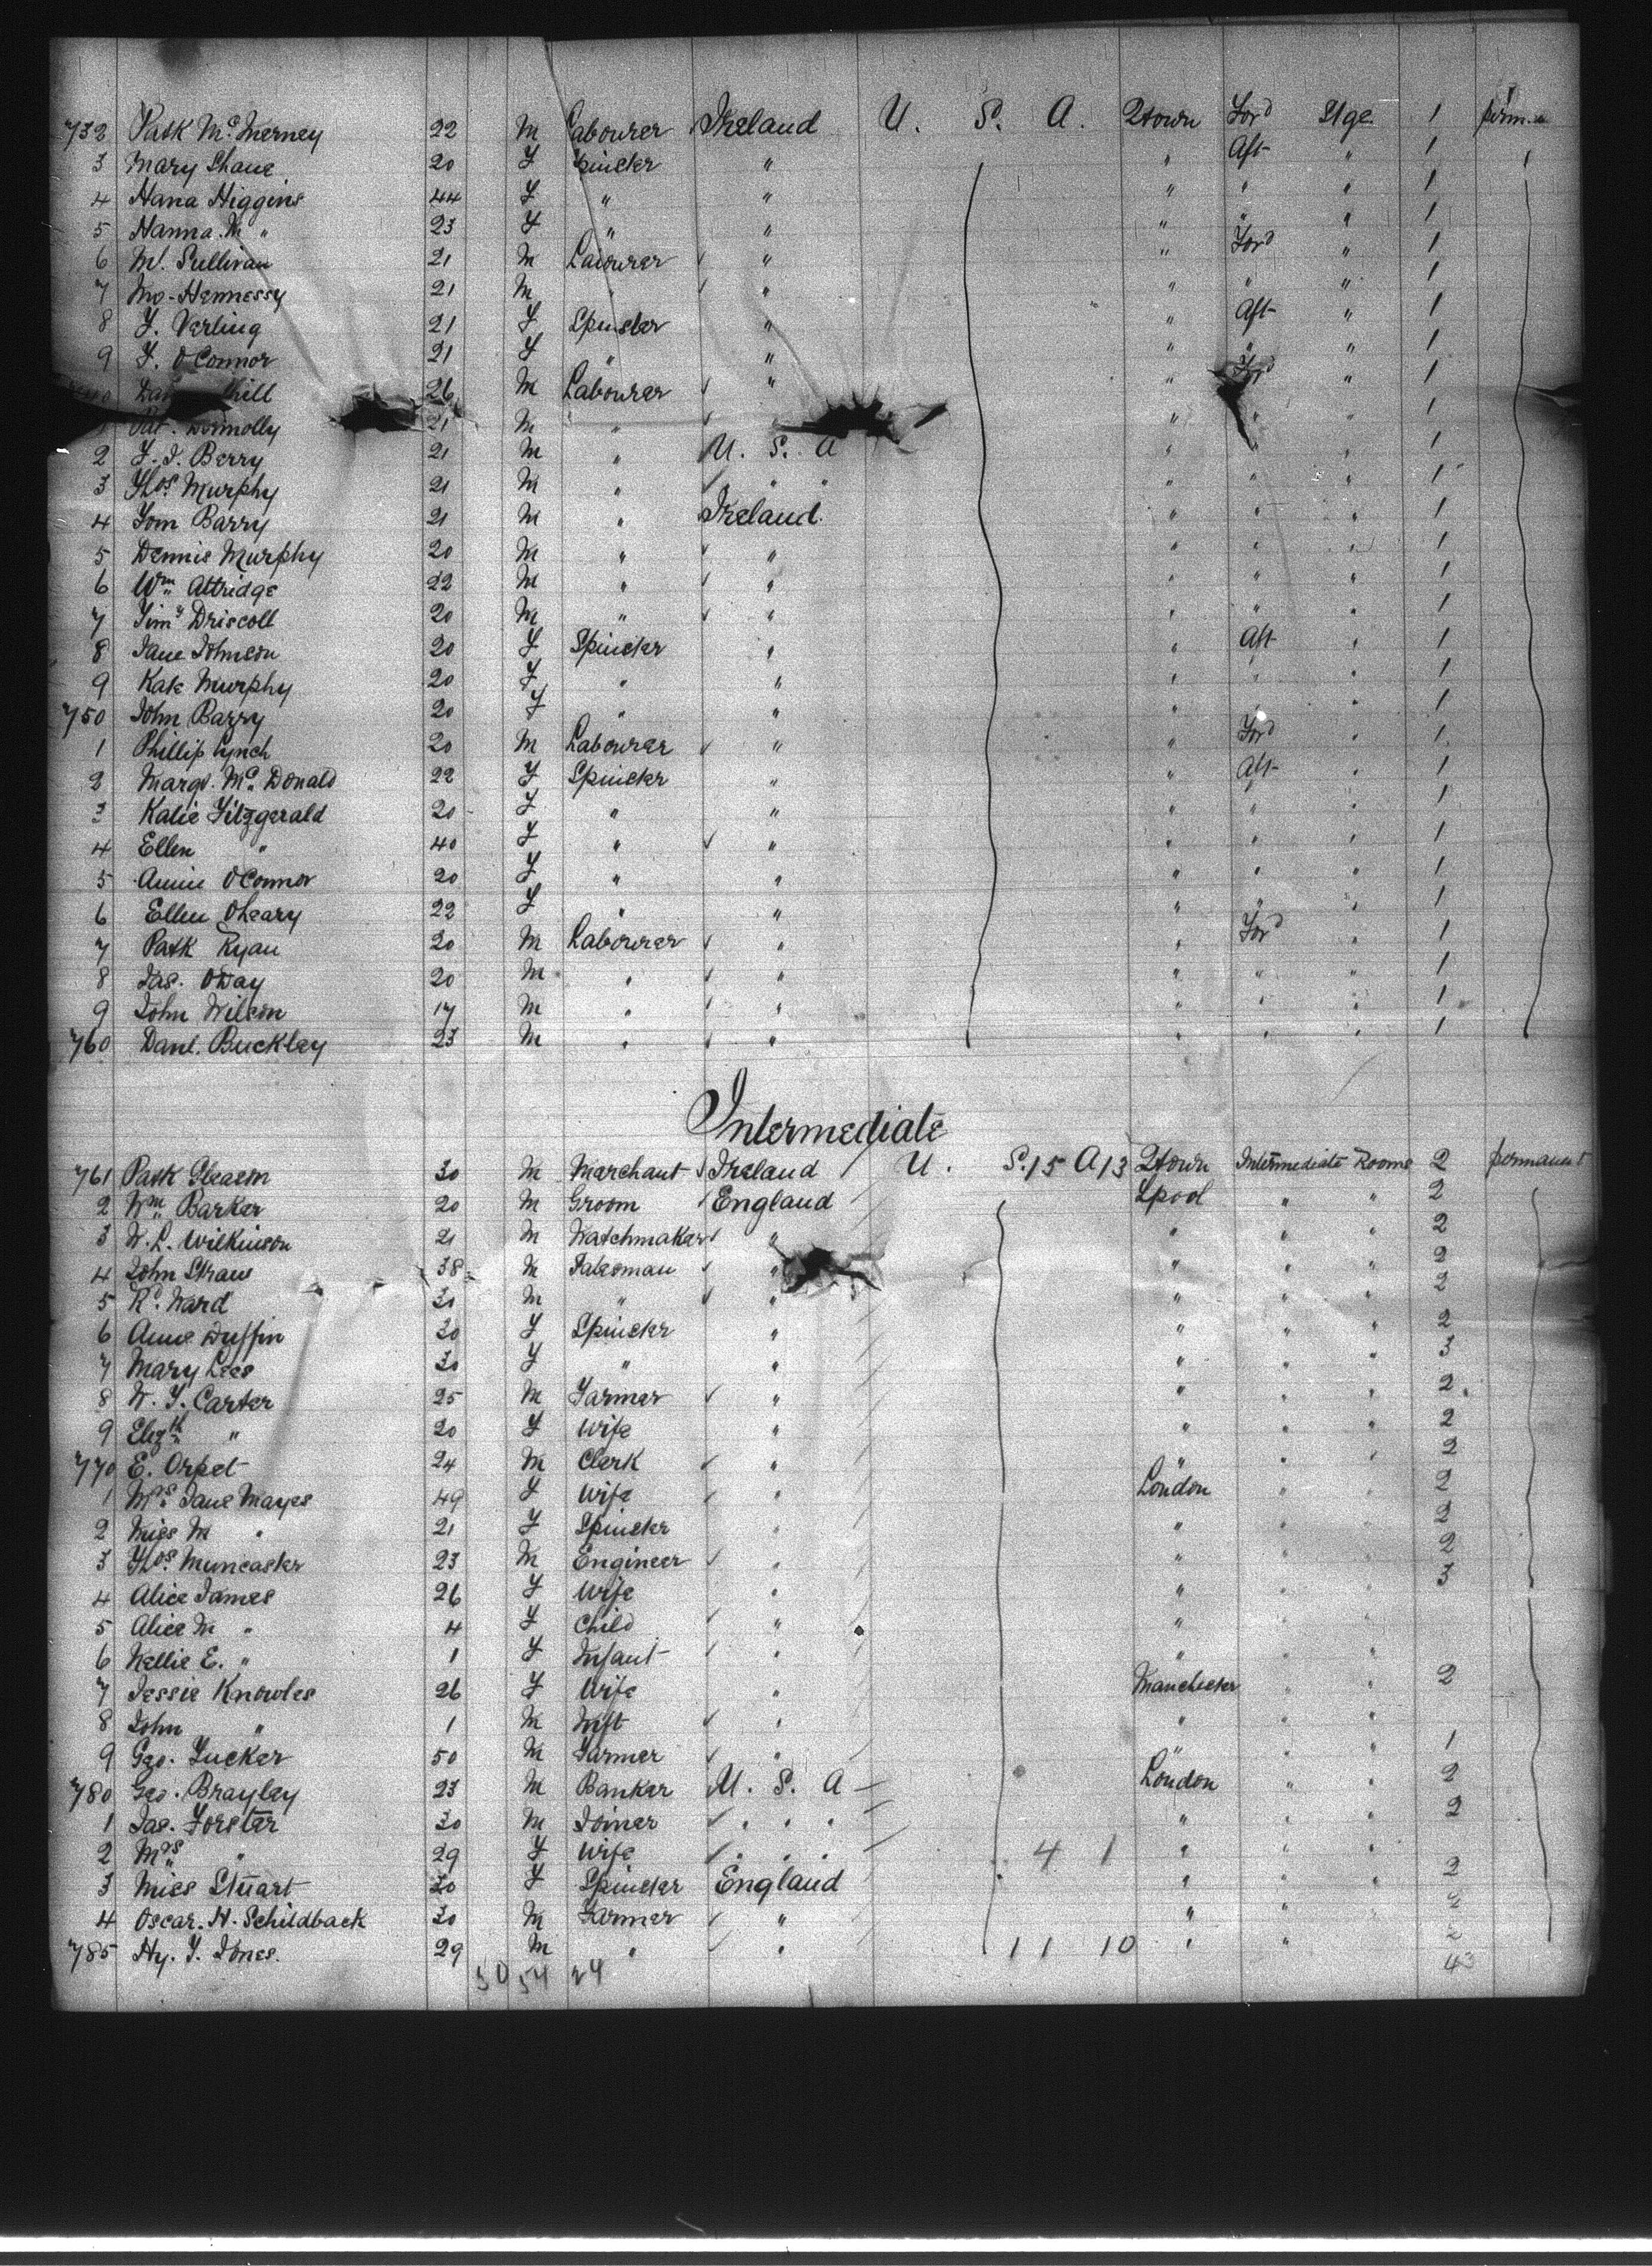 732 Patk McInerney 22 M Labourer Ireland U. S. A. Qtown Ford Stge 1
3 Mary Shane 20 F Spinster " " Aft " 1
4 Hana Higgins 44 F " " " " " 1
5 Hanna M " 23 F " " " " " 1
6 M. Sullivan 21 M Labourer " " Ford " 1
7 Mo. Hennessy 21 M " " " " " 1
8 F. Verling 21 F Spinster " " Aft " 1
9 F. O'Connor 21 F " " " " " 1
26 M Labourer " " Ford " 1
Pat. Donnolly 21 M " " " " 1
2 F. J. Berry 21 M " U. S. A " " " 1
3 Thos Murphy 21 M " " " " " " 1
4 Tom Barry 21 M " Ireland. " " " 1
5 Dennis Murphy 20 M " " " " " 1
6 Wm Attridge 22 M " " " " " 1
7 Timy Driscoll 20 M " " " " " 1
8 Jane Johnson 20 F Spinster " " Aft " 1
9 Kate Murphy 20 F " " " " " 1
750 John Barry 20 F " " " " " 1
1 Phillip Lynch 20 M Labourer " " Ford " 1
2 Margt. McDonald 22 F Spinster " " Aft " 1
3 Katie Fitzgerald 20 F " " " " " 1
4 Ellen " 40 F " " " " " 1
5 Annie O'Connor 20 F " " " " " 1
6 Ellen O'Leary 22 F " " " " " 1
7 Patk Ryan 20 M Labourer " " Ford " 1
8 Jas. O'Day 20 M " " " " " 1
9 John Wilson 17 M " " " " " 1
760 Danl. Buckley 23 M " " " " " 1
Intermediate
761 Patk Gleason 30 M Merchant Ireland U. S. 15 A 13 Qtown Intermediate Rooms 2 permanent
2 Wm Barker 20 M Groom England Lpool " " 2
3 W. L. Wilkinson 21 M Watchmaker " " " " 2
4 John Straw 38 M Salesman " " " " 2
5 Rd. Ward 30 M " " " " " 2
6 Anne Duffin 30 F Spinster " " " " 2
7 Mary Lees 30 F " " " " " 3
8 W. F. Carter 25 M Farmer " " " " 2
9 Elizth " 20 F Wife " " " " 2
770 E. Orpet 24 M Clerk " " " " 2
1 Mrs Jane Mayes 49 F Wife " London " " 2
2 Miss M " 21 F Spinster " " " " 2
3 Thos Muncaster 23 M Engineer " " " " 2
4 Alice James 26 F Wife " " " " 3
5 Alice M " 4 F Child " " " "
6 Nellie E. " 1 F Infant " " " "
7 Jessie Knowles 26 F Wife " Manchester " " 2
8 John " 1 M Inft " " " "
9 Geo. Tucker 50 M Farmer " " " " 1
780 Geo. Brayley 23 M Banker U. S. A London " " 2
1 Jas. Forster 30 M Joiner " " " " " " 2
2 Mrs " 29 F Wife " " " 4 1 " " "
3 Miss Stuart 30 F Spinster England " " " 2
4 Oscar. H. Schildback 30 M Farmer " " " " 2
785 Hy. J. Jones. 29 M " " 11 10 " "
30 54 24 43